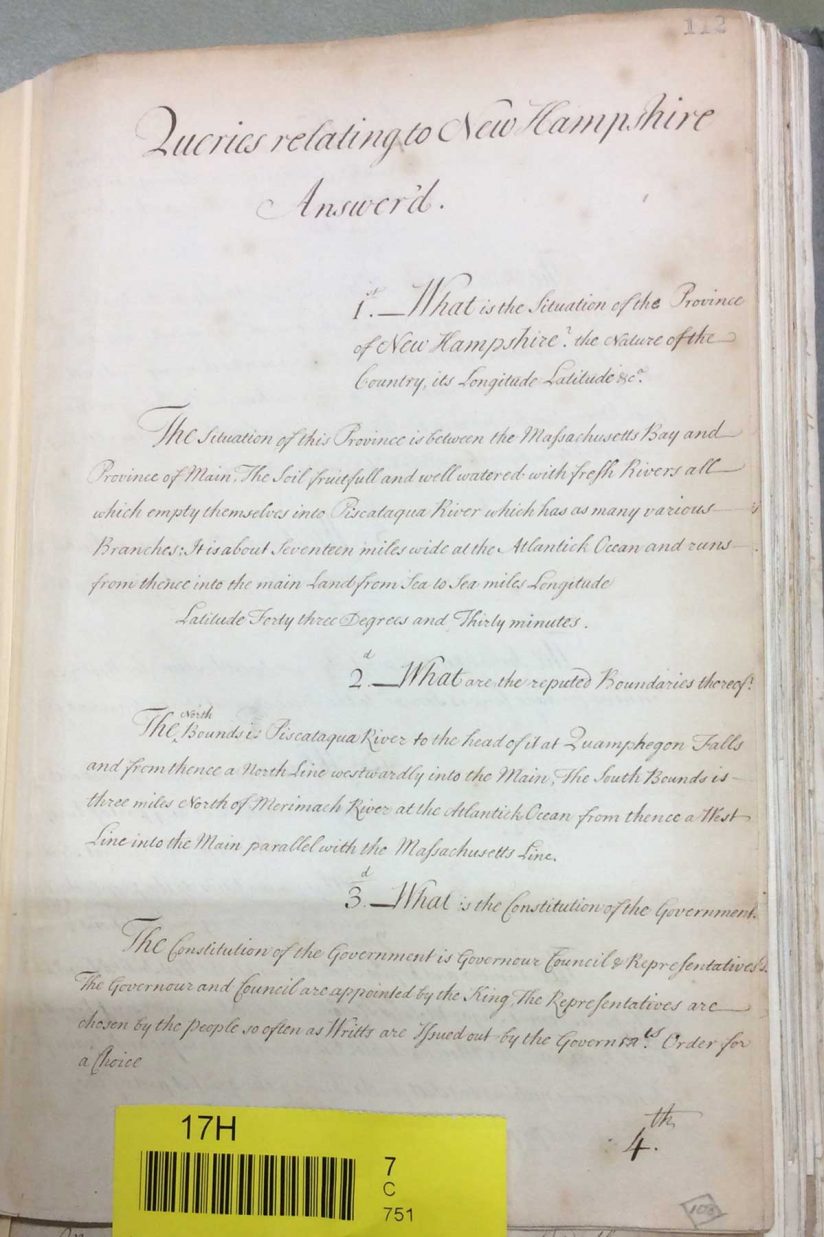 112
Queries relating to New Hampshire
Answer'd.
1st. What is the Situation of the Province
of New Hampshire? the Nature of the
Country, its Longitude Latitude &ca.
The Situation of this Province is between the Massachusetts Bay and
Province of Main, The Soil fruitfull and well watered with fresh Rivers all
which empty themselves into Piscataqua River which has as many various
Branches; It is about Seventeen miles wide at the Atlantick Ocean and runs
from thence into the main Land from Sea to Sea miles Longitude
Latitude Forty three Degrees and Thirty minutes.
2d. What are the reputed Boundaries thereof?
The North Bounds is Piscataqua River to the head of it at Quamphegon Falls
and from thence a North Line westwardly into the Main, The South Bounds is
three miles North of Merimach River at the Atlantick Ocean from thence a West
Line into the Main parallel with the Massachusetts Line.
3d. What is the Constitution of the Government.
The Constitution of the Government is Governour Council & Representatives.
The Governour and Council are appointed by the King, The Representatives are
chosen by the People so often as Writts are Issued out by the Order for
a Choice
4th.
108
17H
7
C
751